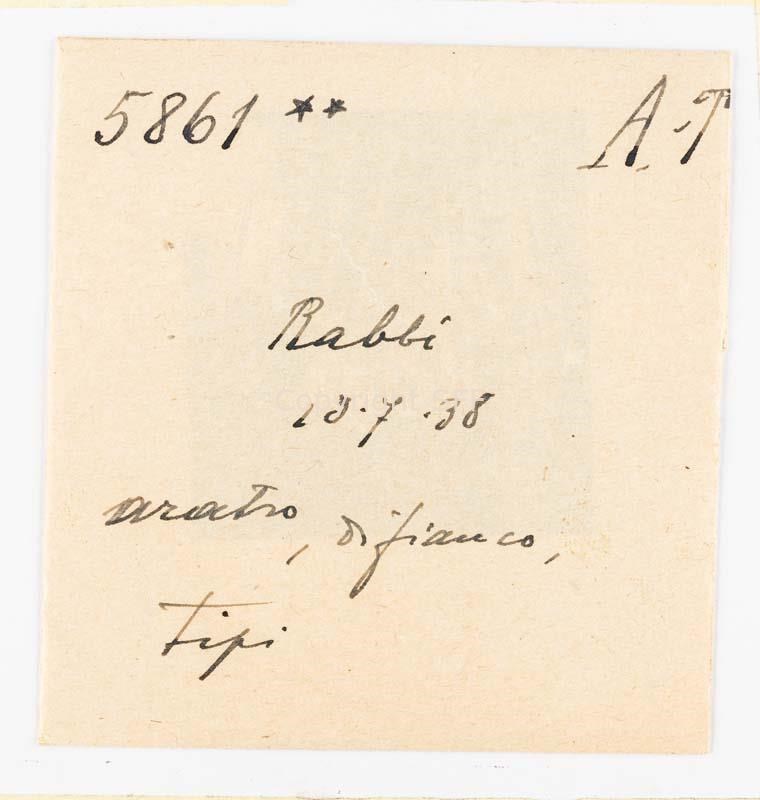 5861 ** A.-T
Rabbi
13.7.38
aratro, di fianco,
Tipi